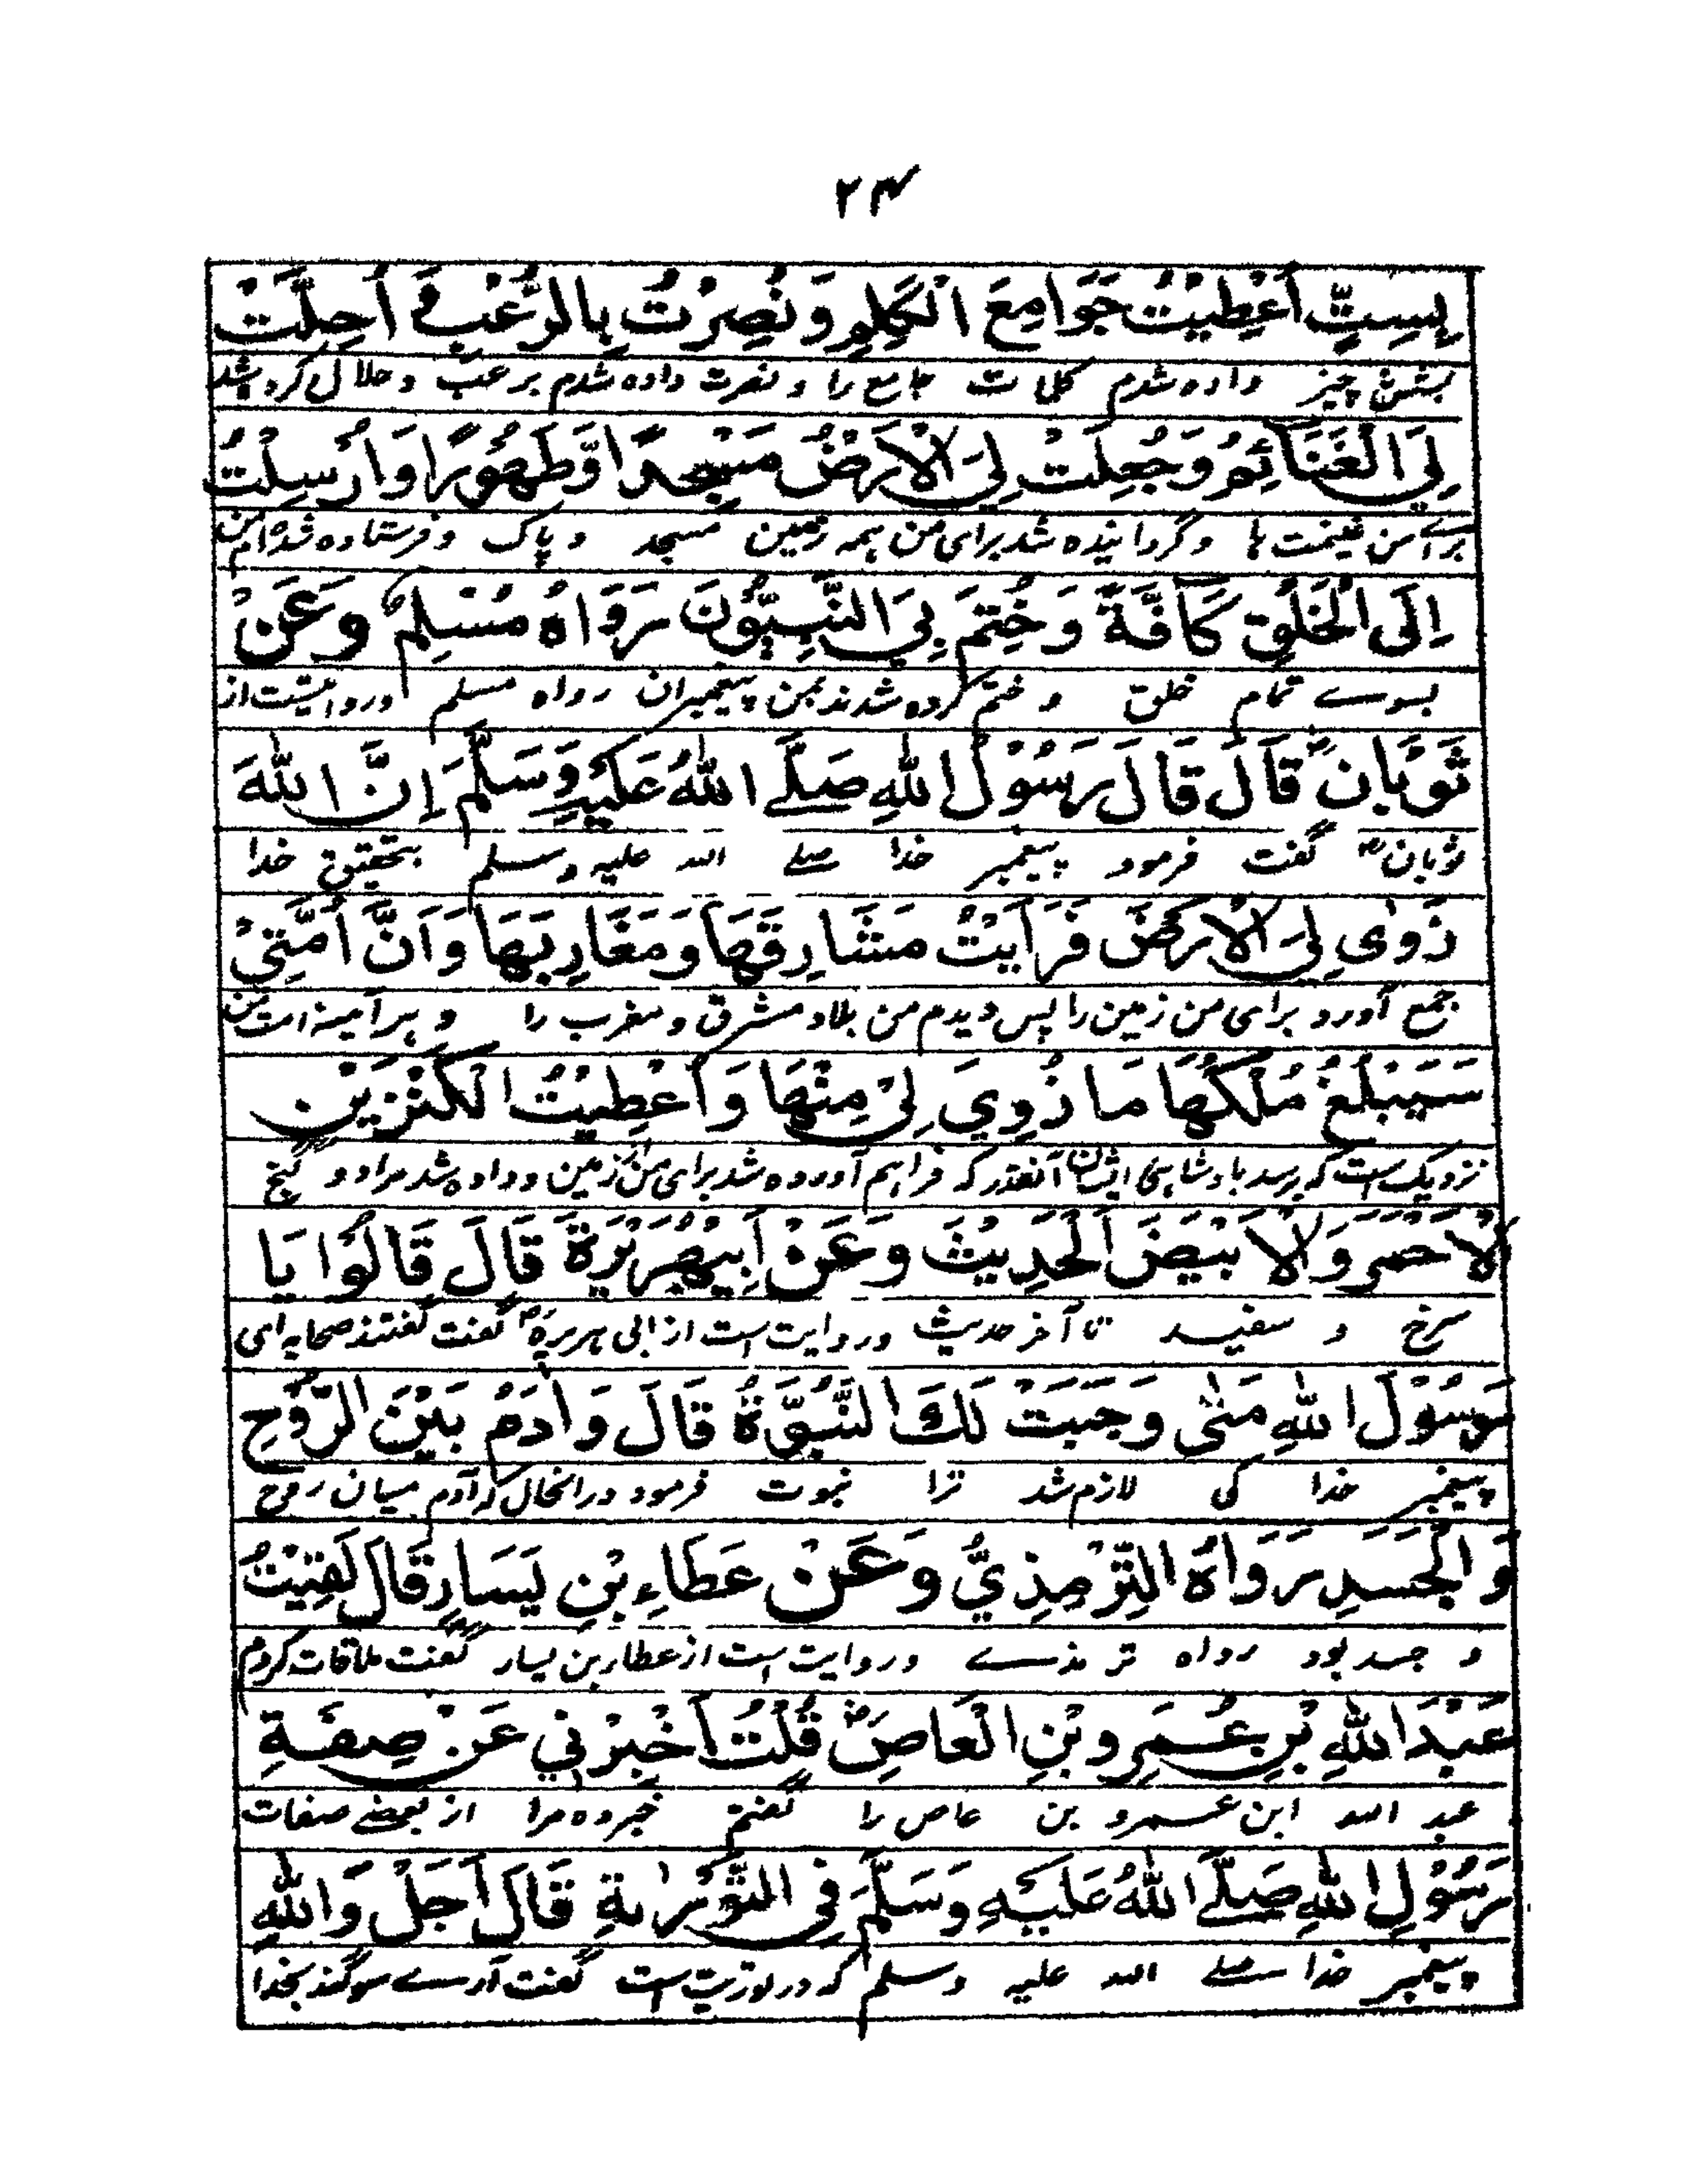 ۲۴
بِسِتٍّ أُعْطِيْتُ جَوَامِعَ الْكَلِمِ وَنُصِرْتُ بِالرُّعْبِ وَ أُحِلَّتْ
بشش چیز داده شدم کلمات جامع را و نصرت داده شدم برعب و حلال کرده شد
لِيَ الْغَنَائِمُ وَجُعِلَتْ لِيَ الْاَرْضُ مَسْجِدًا وَّطَهُوْرًا وَاُرْسِلْتُ
برای من غنیمت ها و گردانیده شد برای من همه زمین مسجد و پاک و فرستاده شده ام من
اِلَى الْخَلْقِ كَافَّةً وَخُتِمَ بِيَ النَّبِيُّوْنَ رَوَاهُ مُسْلِمٌ وَعَنْ
بسوے تمام خلق و ختم کرده شدند بمن پیغمبران رواه مسلم و روایتست از
ثَوْبَانَ قَالَ قَالَ رَسُوْلُ اللهِ صَلَّے اللهُ عَلَيْهِ وَسَلَّمَ إِنَّ اللهَ
ثوبان گفت فرمود پیغمبر خدا صلے الله علیه وسلم بتحقیق خدا
زَوٰى لِيَ الْاَرْضَ فَرَاَيْتُ مَشَارِقَهَا وَمَغَارِبَهَا وَاَنَّ اُمَّتِيْ
جمع آورد برای من زمین را پس دیدم من بلاد مشرق و مغرب را و هر آئینه امت من
سَيَبْلُغُ مُلْكُهَا مَا زُوِيَ لِيْ مِنْهَا وَاُعْطِيْتُ الْكَنْزَيْنِ
نزدیک است که برسد بادشاهی ایشان آنقدر که فراهم آورده شد برای من از زمین و داده شد مرا دو گنج
الْاَحْمَرَ وَالْاَبْيَضَ الْحَدِيْثَ وَعَنْ اَبِيْ هُرَيْرَةَ قَالَ قَالُوْا يَا
سرخ و سفید تا آخر حدیث و روایت است از ابی هریره گفت گفتند صحابه ای
رَسُوْلَ اللهِ مَتٰى وَجَبَتْ لَكَ النُّبُوَّةُ قَالَ وَاٰدَمُ بَيْنَ الرُّوْحِ
پیغمبر خدا کی لازم شد ترا نبوت فرمود در انحال که آدم میان روح
وَالْجَسَدِ رَوَاهُ التِّرْمِذِيُّ وَعَنْ عَطَاءِ بْنِ يَسَارٍ قَالَ لَقِيْتُ
و جسد بود رواه ترمذے و روایت است از عطاء بن یسار گفت ملاقات کردم
عَبْدَ اللهِ بْنِ عَمْرِو بْنِ الْعَاصِ قُلْتُ اَخْبِرْنِي عَنْ صِفَةِ
عبد الله ابن عمرو بن عاص را گفتم خبر ده مرا از بعضے صفات
رَسُوْلِ اللهِ صَلَّے اللهُ عَلَيْهِ وَسَلَّمَ فِي التَّوْرٰىةِ قَالَ اَجَلْ وَاللهِ
پیغمبر خدا صلے الله علیه وسلم که در توریت است گفت آرے سوگند بخدا